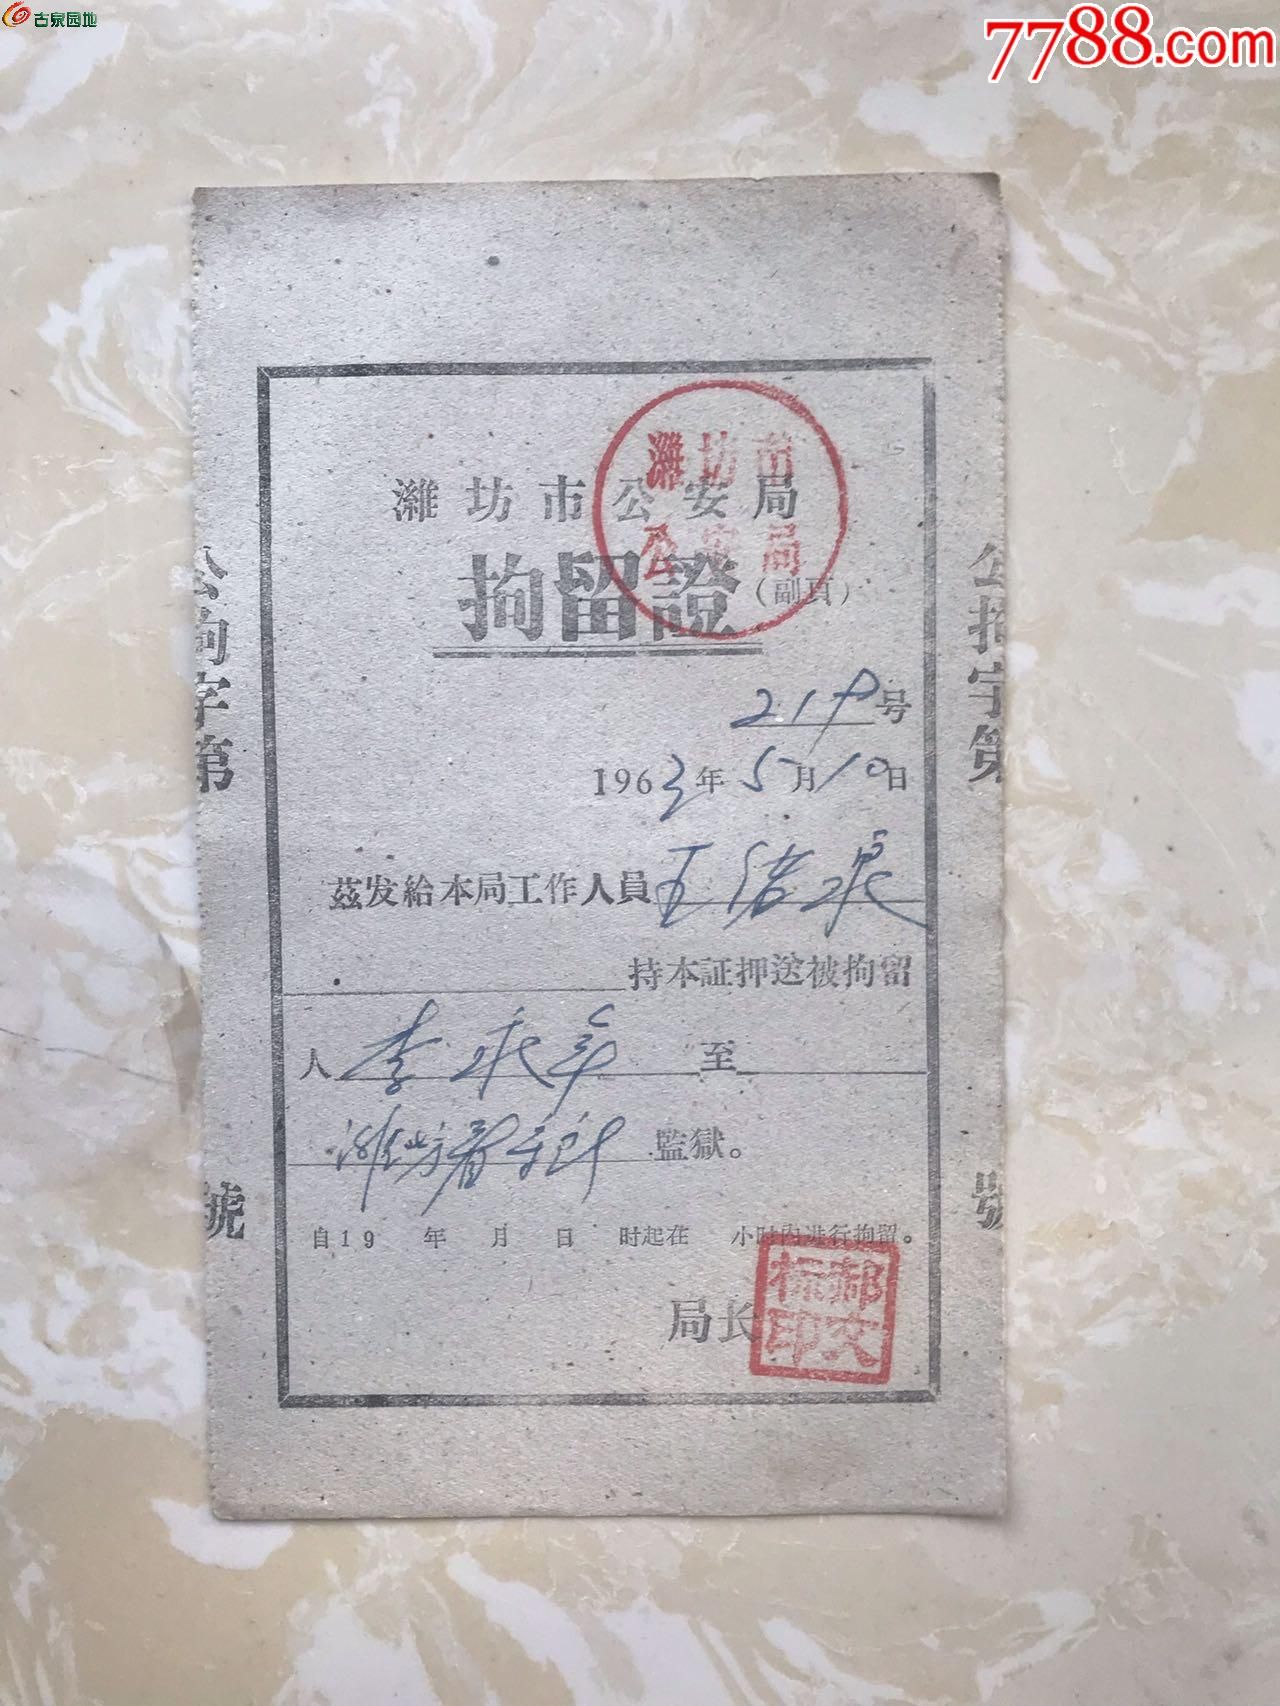 古泉园地
7788.com
濰坊市公安局
濰坊市
公安局
拘留證(副頁)
219号
1963年5月10日
茲发給本局工作人員王绪泉
持本証押送被拘留
人李永年至
濰坊看守所監獄。
自19 年 月 日 时起在 小时内进行拘留。
局长
郝文标印
公拘字第
號
公拘字第
號